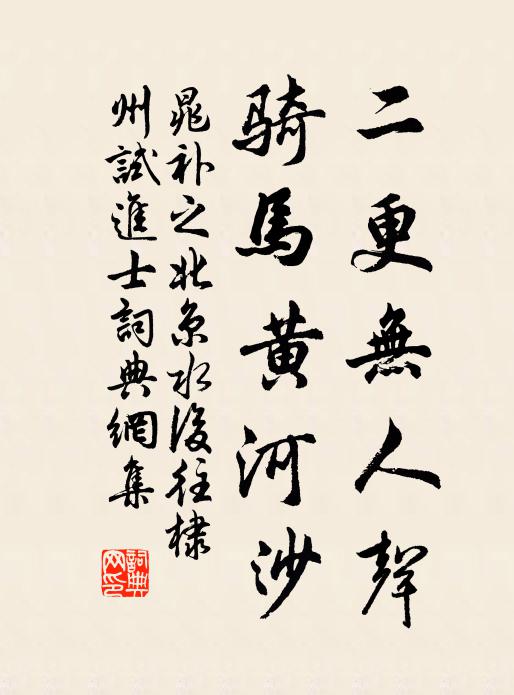 二更無人聲
騎馬黃河沙
晁補之北京水後往棣
州試進士詞典網集
詞典
网印